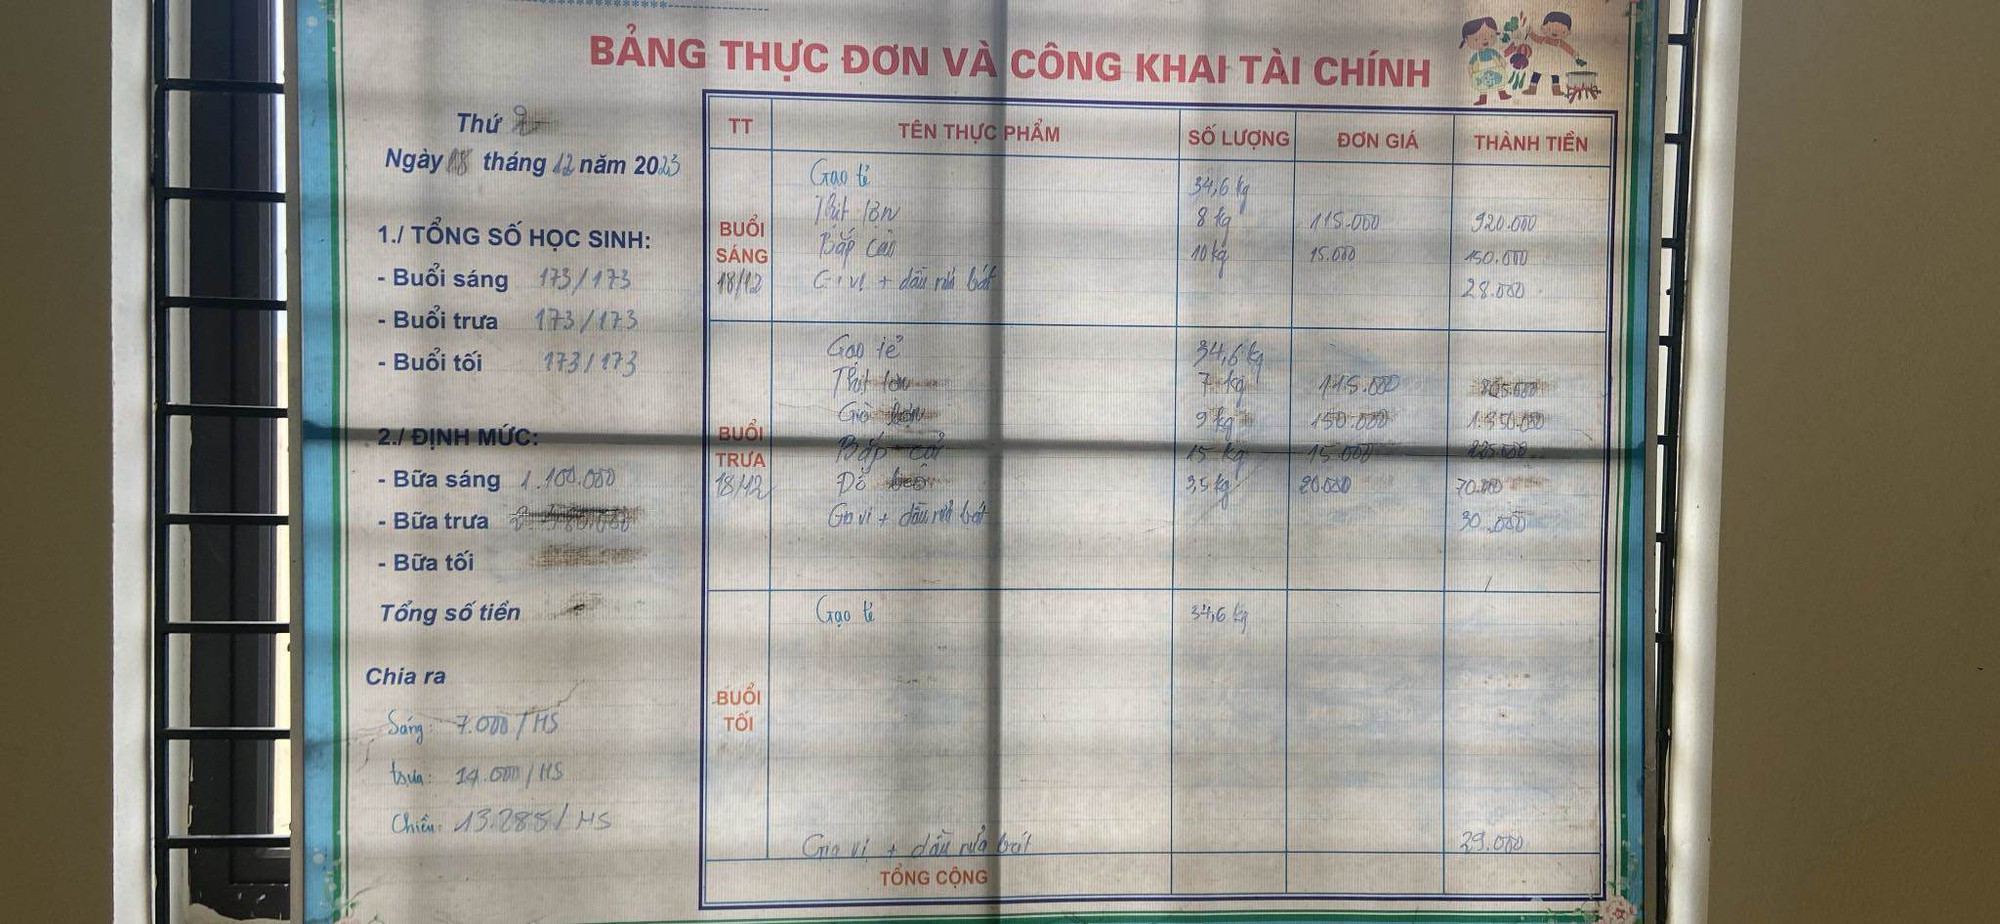 BẢNG THỰC ĐƠN VÀ CÔNG KHAI TÀI CHÍNH
Thứ 2
Ngày 18 tháng 12 năm 2023
1./ TỔNG SỐ HỌC SINH:
- Buổi sáng 173/173
- Buổi trưa 173/173
- Buổi tối 173/173
2./ ĐỊNH MỨC:
- Bữa sáng 1.100.000
- Bữa trưa
- Bữa tối
Tổng số tiền
Chia ra
Sáng: 7.000/HS
trưa: 14.000/HS
Chiều: 13.285/HS
TT TÊN THỰC PHẨM SỐ LƯỢNG ĐƠN GIÁ THÀNH TIỀN
BUỔI SÁNG 18/12
Gạo tẻ 34,6 kg
Thịt lợn 8 kg 115.000 920.000
Bắp cải 10 kg 15.000 150.000
Gia vị + dầu rửa bát 28.000
BUỔI TRƯA 18/12
Gạo tẻ 34,6 kg
Thịt lợn 7 kg 115.000 805.000
Giò lợn 9 kg 150.000 1.350.000
Bắp cải 15 kg 15.000 225.000
3,5 kg 20.000 70.000
Gia vị + dầu rửa bát 30.000
BUỔI TỐI
Gạo tẻ 34,6 kg
Gia vị + dầu rửa bát 29.000
TỔNG CỘNG